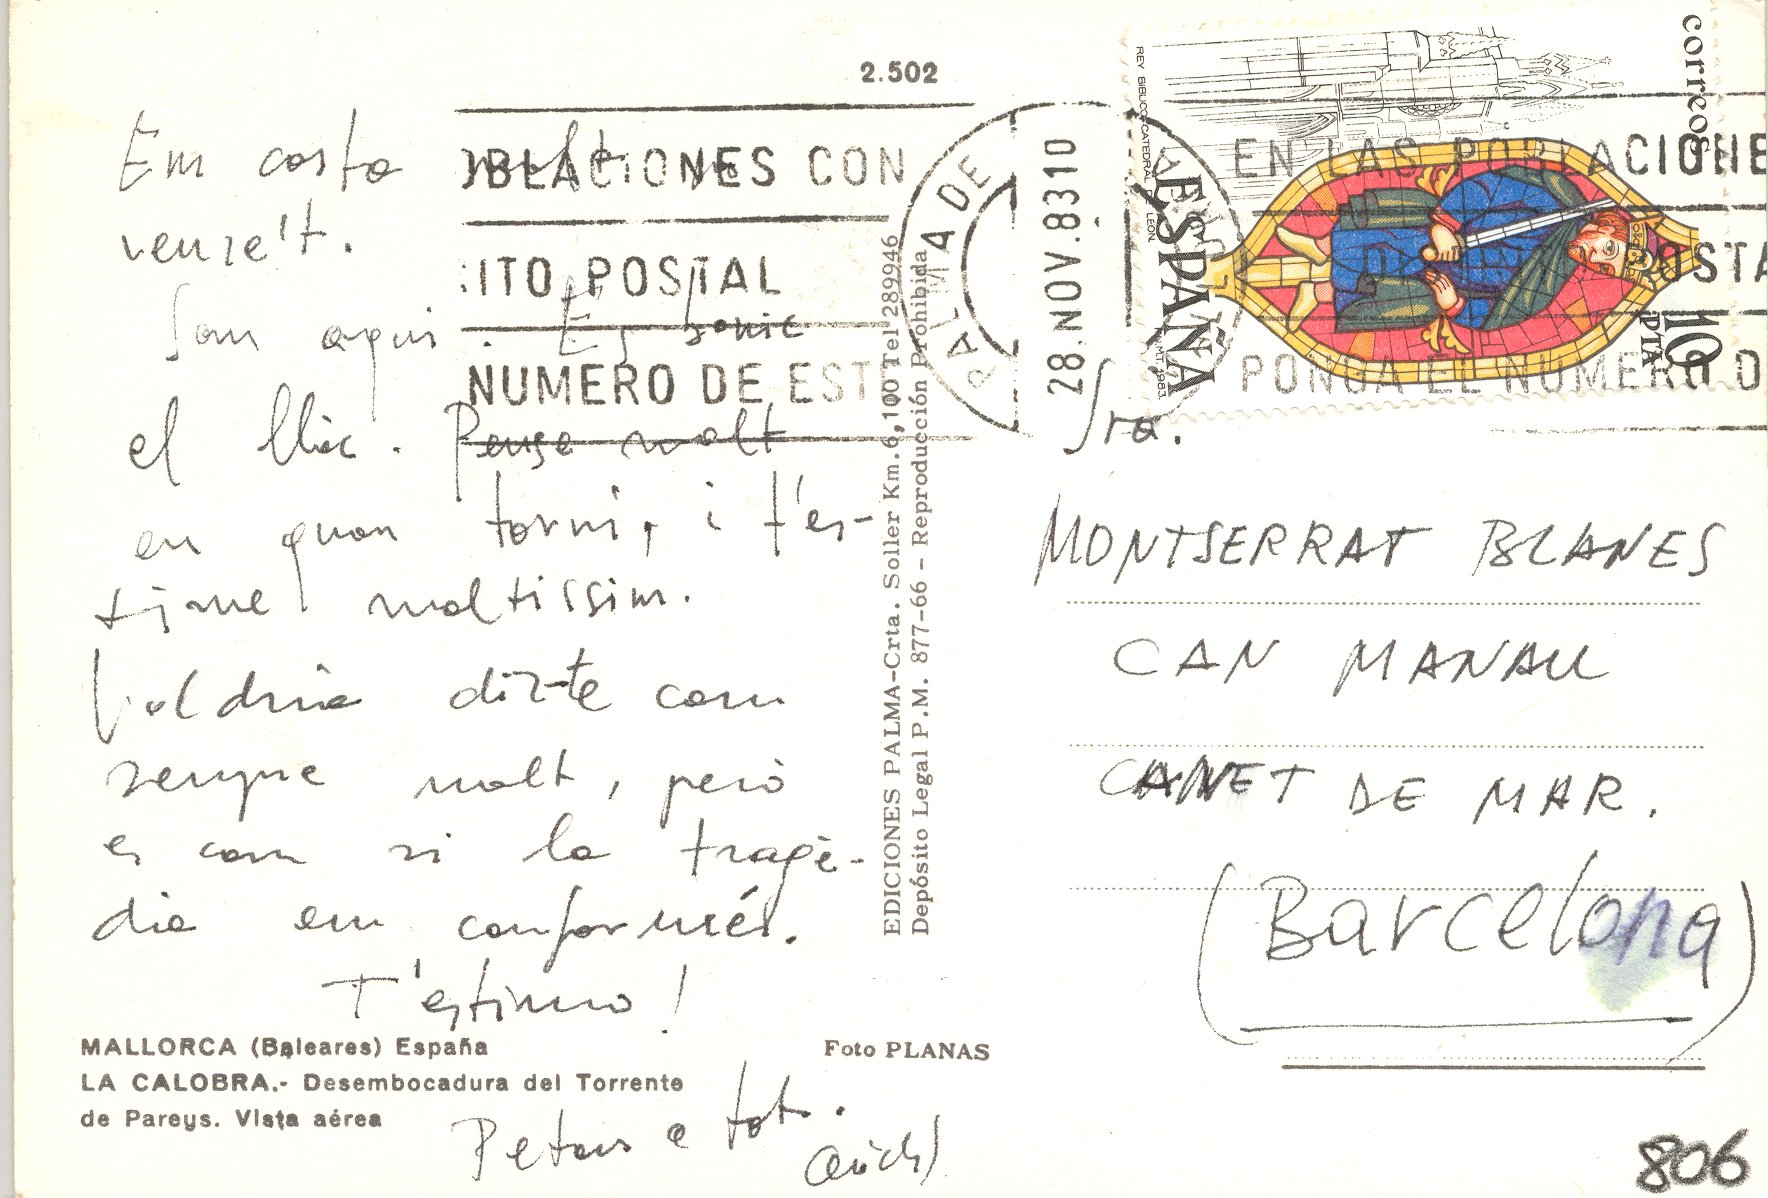 2.502
Em costa molt no
veure't.
Som aquí. És bonic
el lloc. Penso molt
en quan torni, i t'es-
timo moltíssim.
Voldria dir-te com
sempre molt, però
és com si la tragè-
dia em conformés.
T'estimo!
Petons a tots.
MALLORCA (Baleares) España
LA CALOBRA.- Desembocadura del Torrente
de Pareys. Vista aérea
Foto PLANAS
EDICIONES PALMA-Crta. Soller Km. 6,100 Tel 289946
Depósito Legal P.M. 877-66 - Reproducción Prohibida
OBLACIONES CON
ITO POSTAL
NUMERO DE EST
PALMA DE
28.NOV.8310
EN LAS POBLACIONE
PONGA EL NUMERO D
correos
ESPAÑA
10 PTA
REY BIBLICO-CATEDRAL DE LEON.
Sra.
MONTSERRAT BLANES
CAN MANAU
CANET DE MAR.
(Barcelona)
806